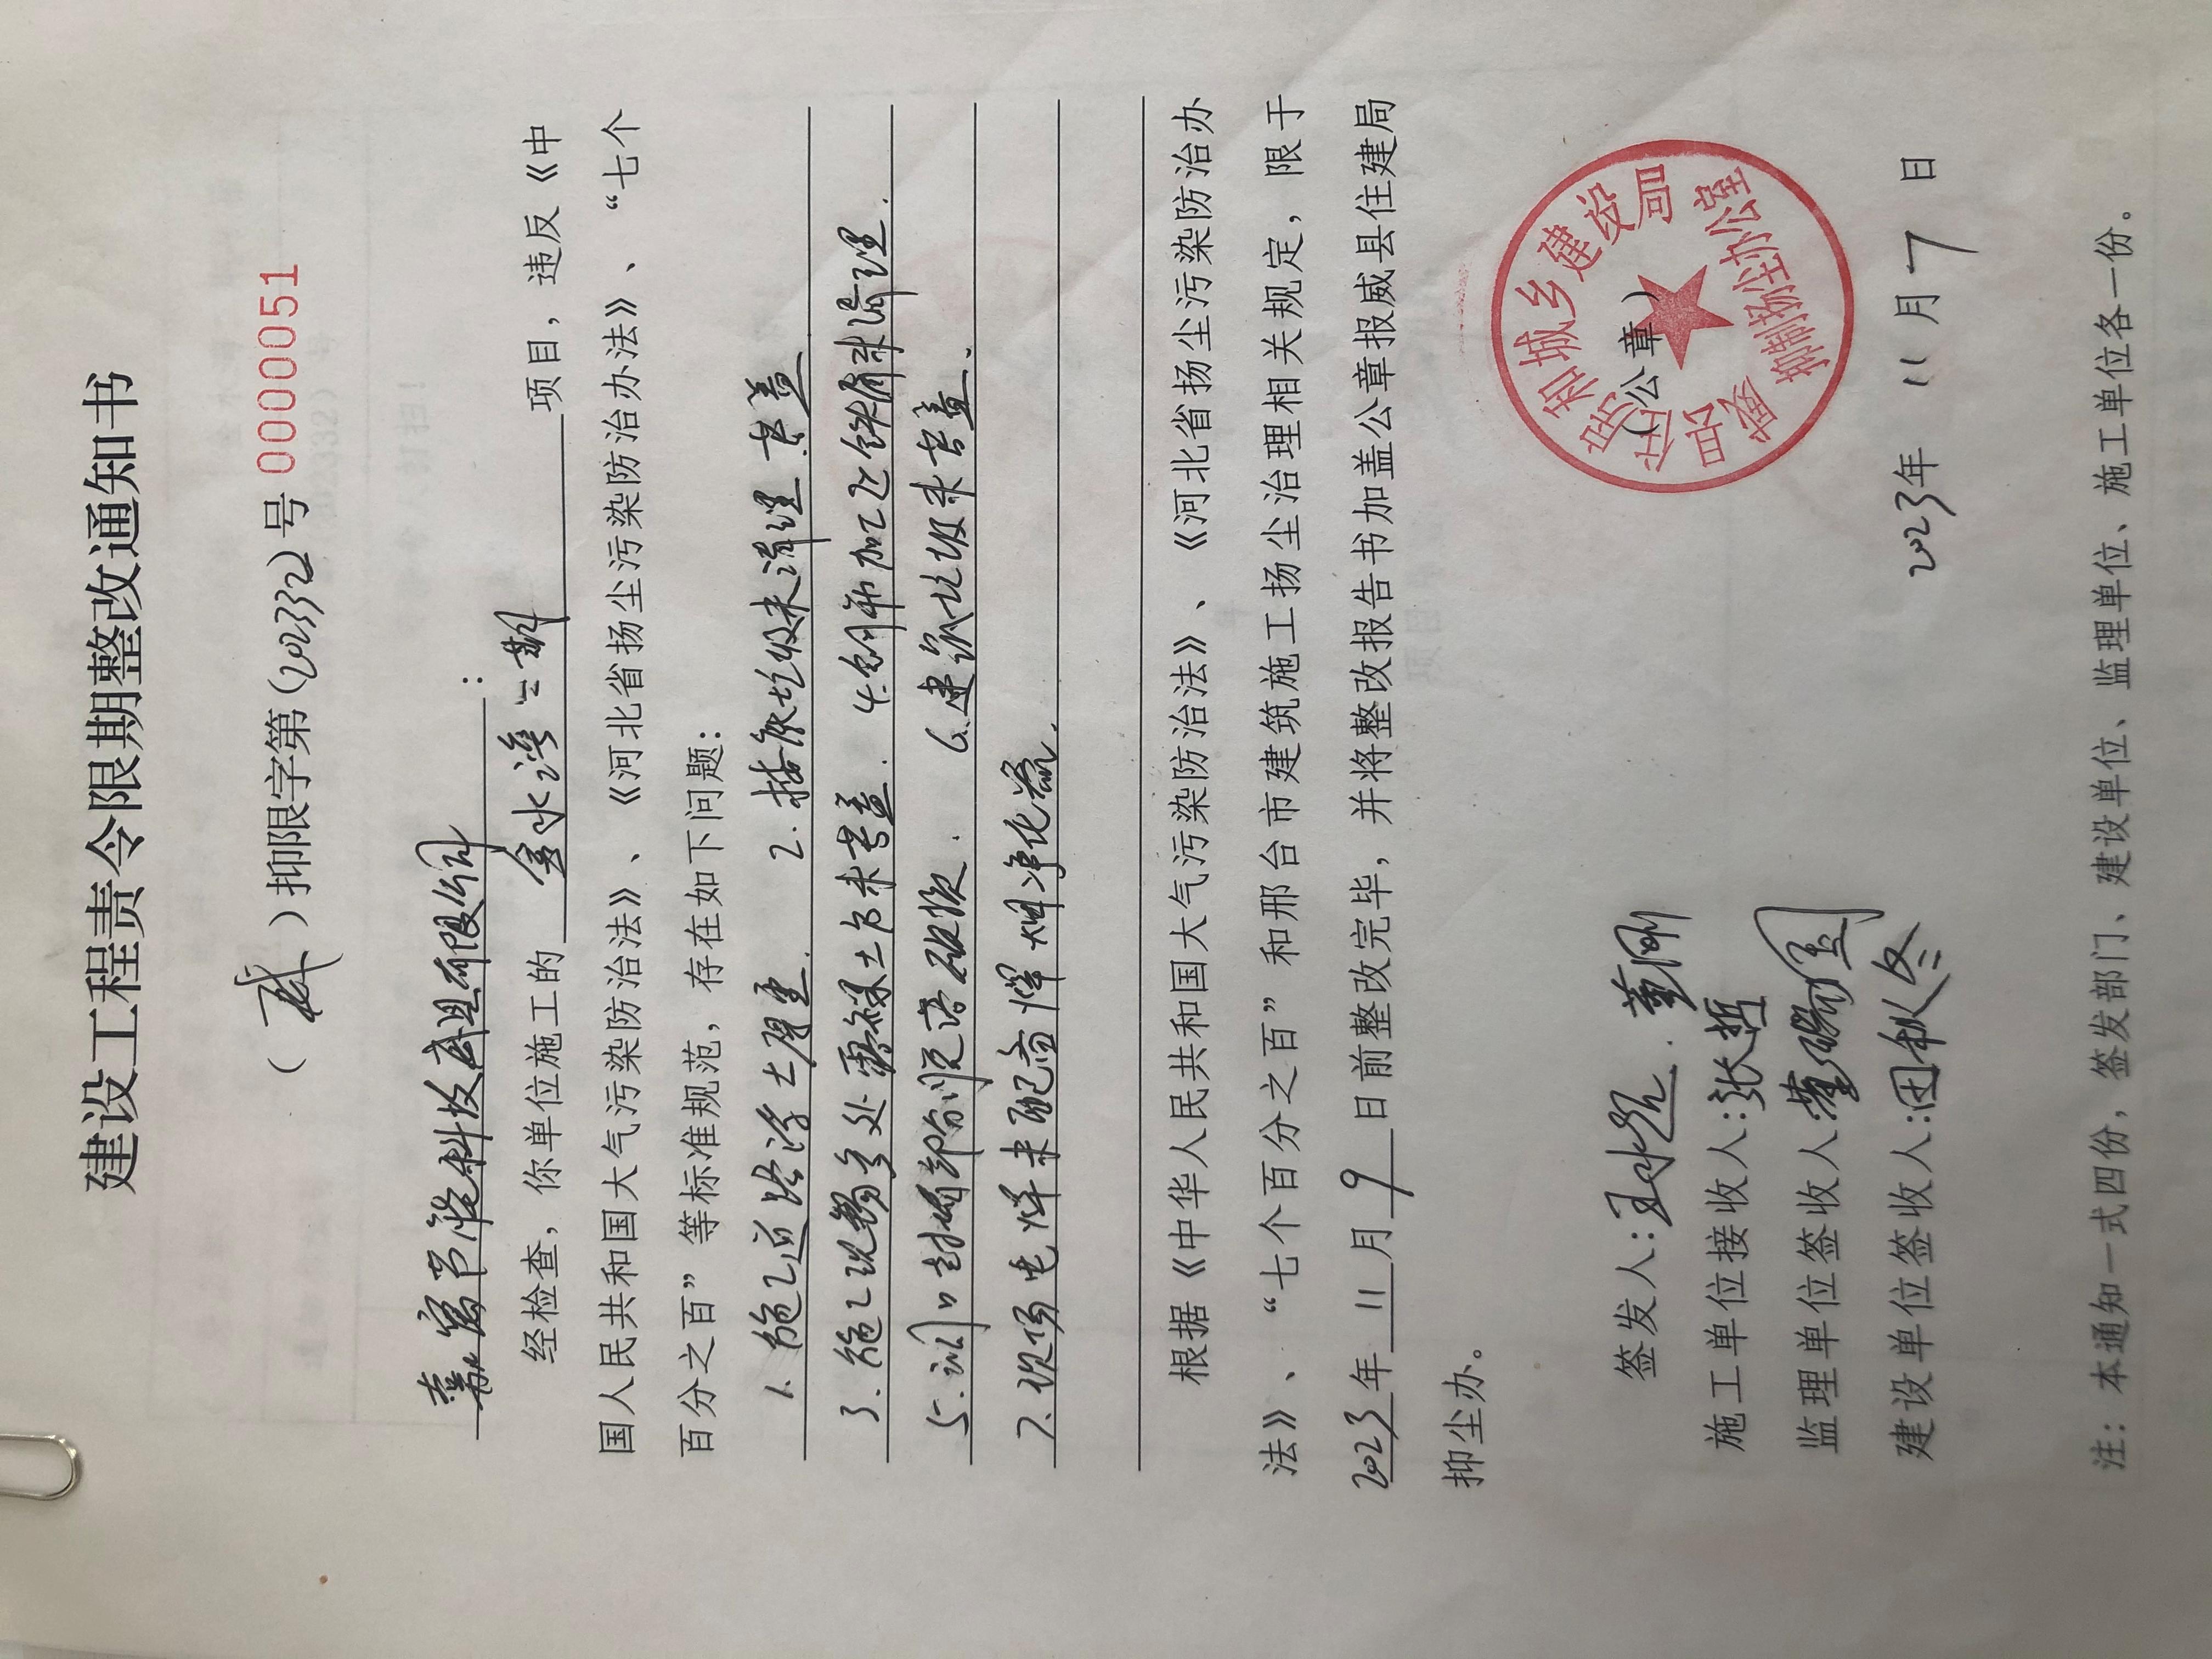 建设工程责令限期整改通知书
（威）抑限字第(202332)号 0000051
嘉寓节能科技威县有限公司：
经检查，你单位施工的 金水湾二期 项目，违反《中
国人民共和国大气污染防治法》、《河北省扬尘污染防治办法》、“七个
百分之百”等标准规范，存在如下问题：
1. 施工道路浮土严重. 2. 垃圾未清理 苫盖
3. 施工现场多处裸土方未苫盖. 4. 钢筋加工区铁屑未清理.
5. 门口封堵部分 破损. 6. 建筑垃圾未苫盖.
7. 现场电焊未配备焊烟净化器.
根据《中华人民共和国大气污染防治法》、《河北省扬尘污染防治办
法》、“七个百分之百”和邢台市建筑施工扬尘治理相关规定，限于
2023年11月9日前整改完毕，并将整改报告书加盖公章报威县住建局
抑尘办。
签发人：
施工单位接收人：张哲
监理单位签收人：
建设单位签收人：田秋冬
（公章）
威县住房和城乡建设局
抑制扬尘办公室
2023年11月7日
注：本通知一式四份，签发部门、建设单位、监理单位、施工单位各一份。